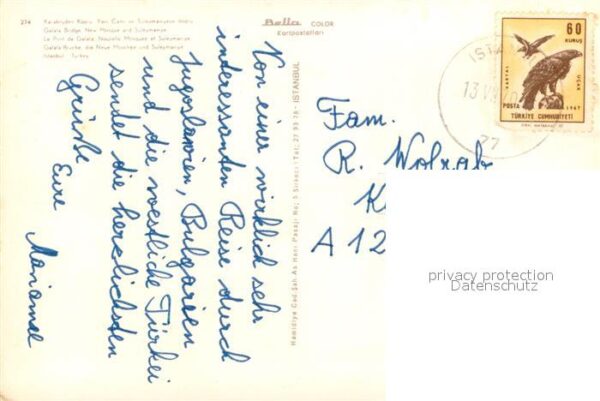 234 Karaköyden Köprü, Yeni Cami ve Süleymaniye
Galata Bridge, New Mosque and Suleymaniye
Le Pont de Galata, Nouvelle Mosquée et Suleymanie
Galata Brücke, die Neue Moschee und Süleymaniye
Istanbul - Turkey
Bella COLOR
Kartpostalları
Von einer wirklich sehr
interessanten Reise durch
Jugoslawien, Bulgarien
und die westliche Türkei
sendet die herzlichsten
Grüße
Eure
Hamidiye Cad. Şah. As Hanı Pasajı No: 5 Sirkeci - Tel: 27 93 78 - İSTANBUL
Fam.
R. Wolrab
K
A 12
60
KURUŞ
KARTAL
UÇAK
POSTA 1967
TÜRKİYE CUMHURİYETİ
IST
13
27
privacy protection
Datenschutz